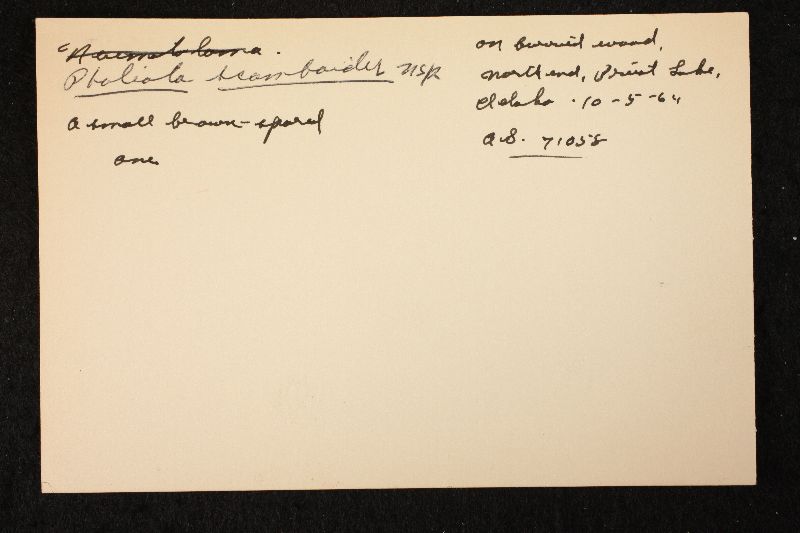 Naematoloma.
Pholiota scamboides nsp
a small brown-spored
one
on buried wood,
north end, Priest Lake,
Idaho. 10-5-64
A.S. 71058